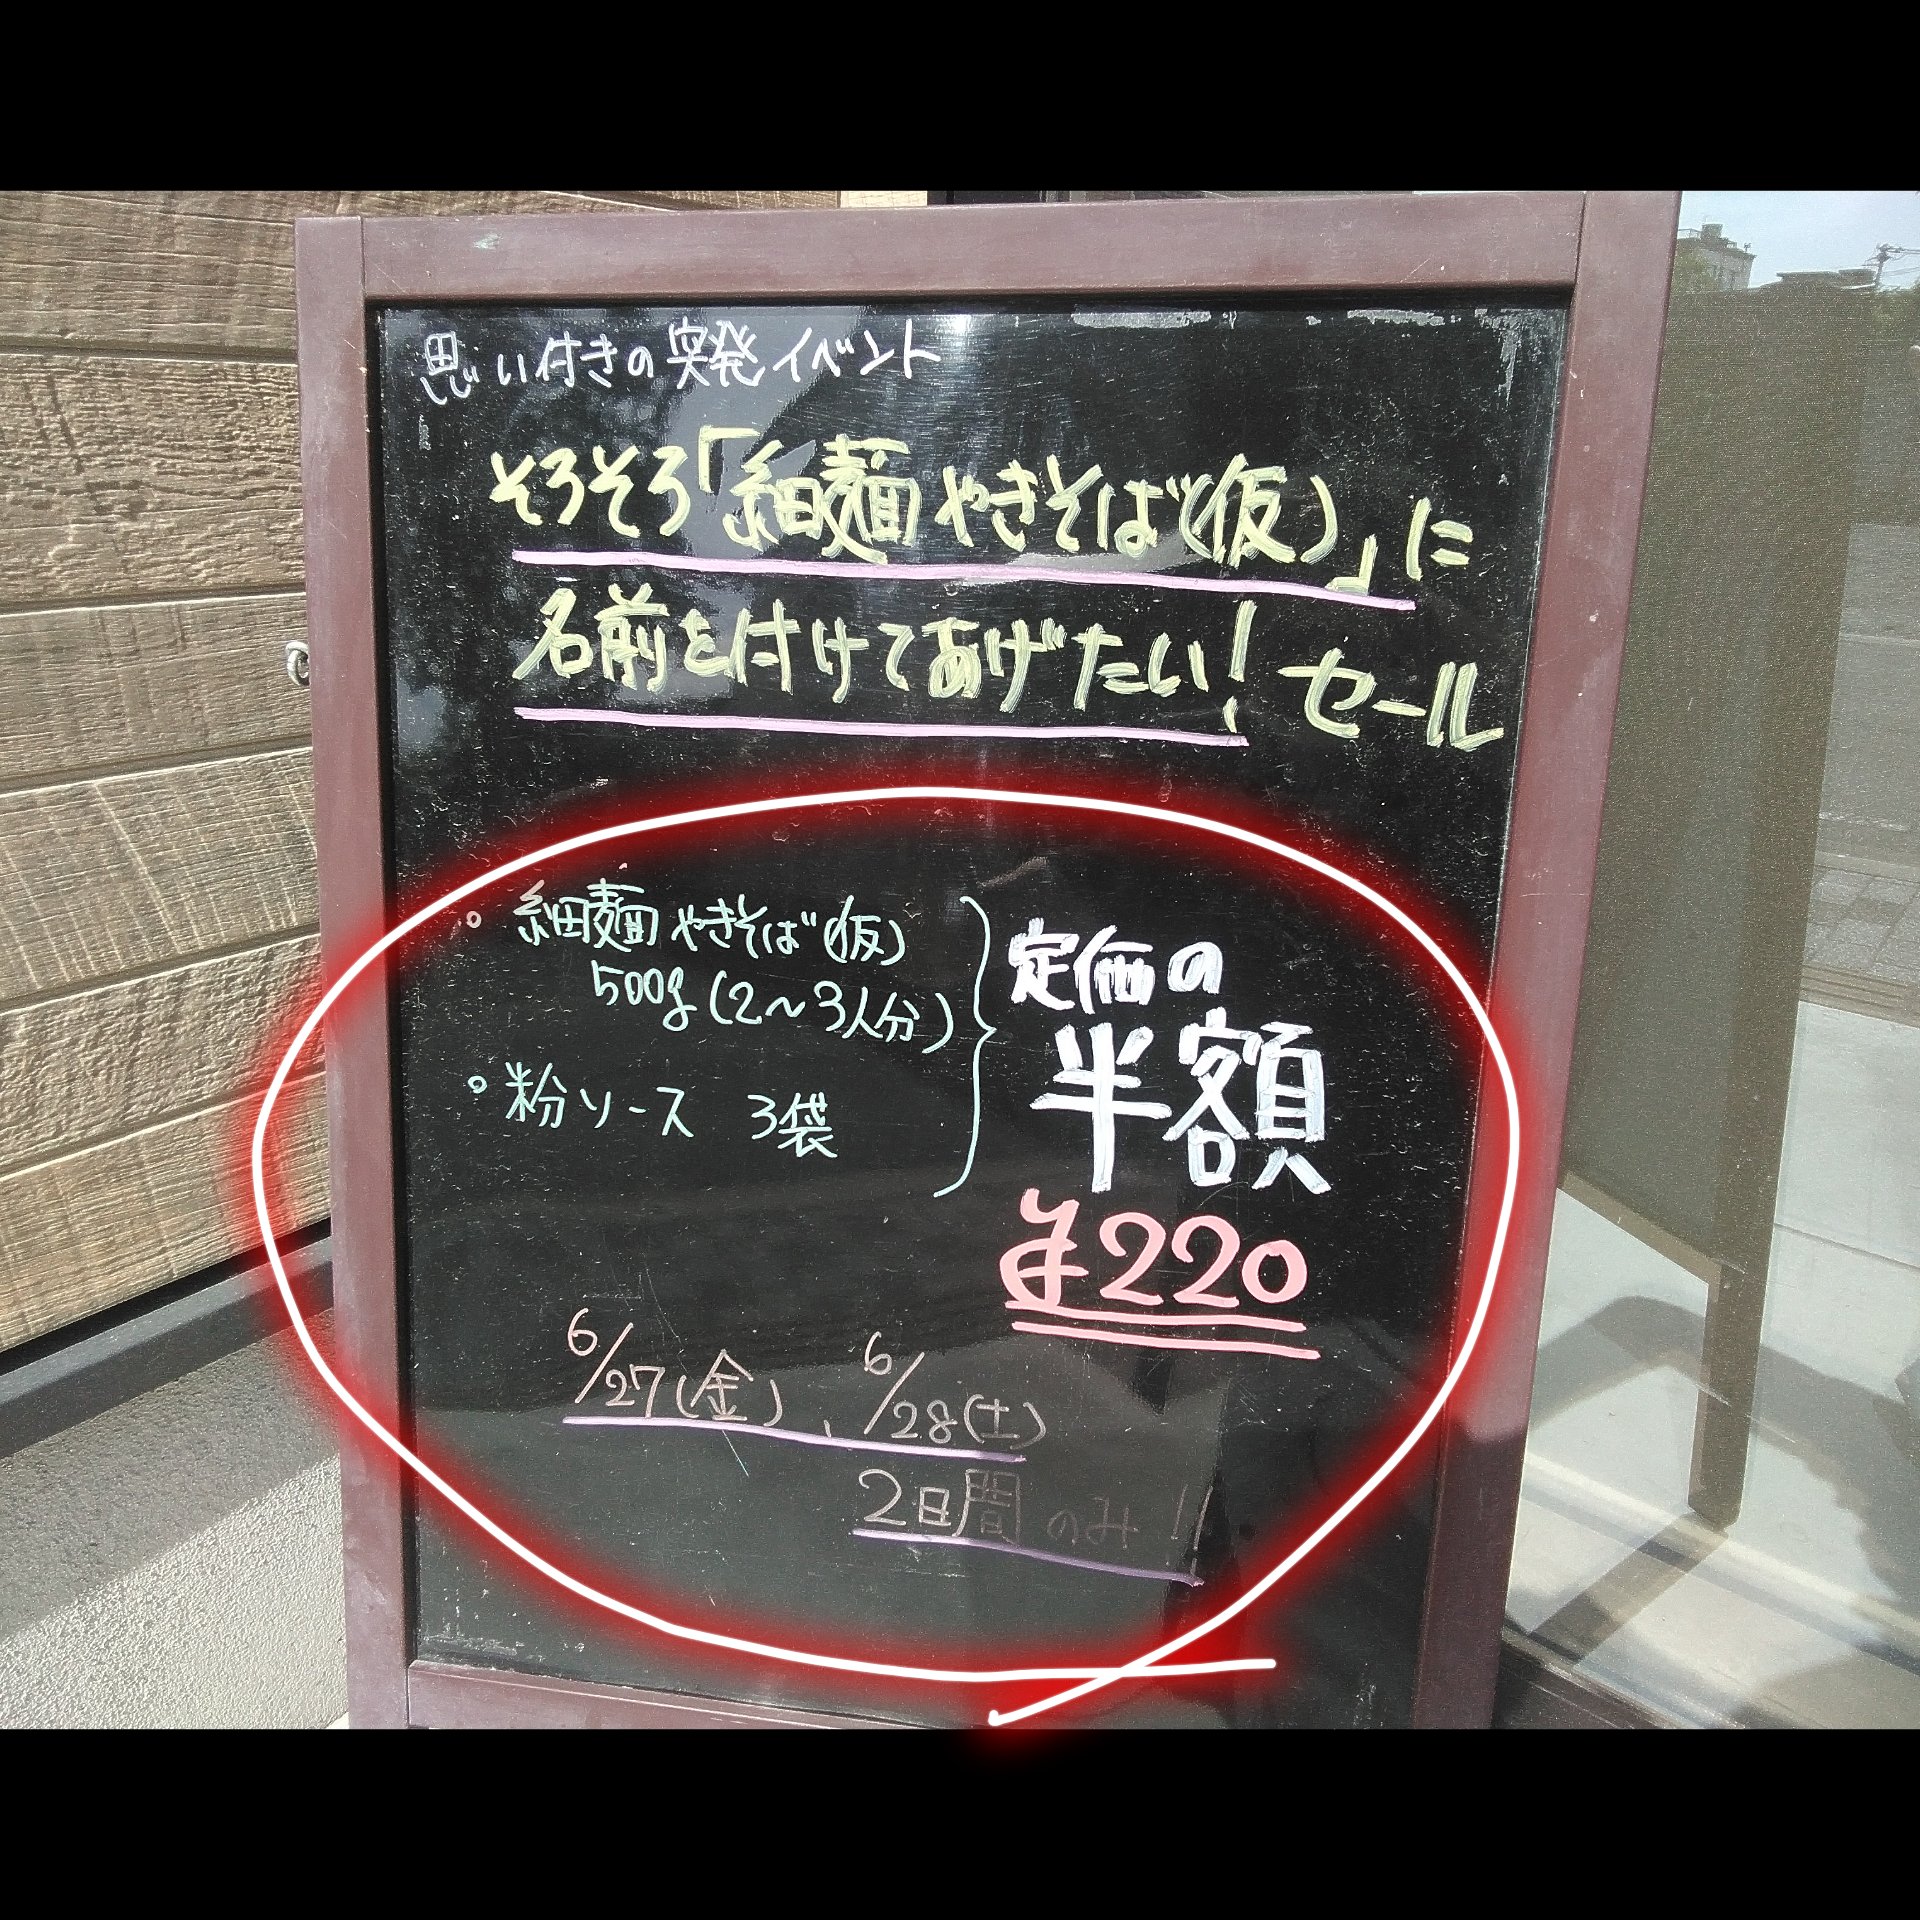 思い付きの突発イベント
そろそろ「細麺やきそば(仮)」に
名前を付けてあげたい!セール
。細麺やきそば(仮)
500g(2〜3人分)
。粉ソース 3袋
定価の
半額
¥220
6/27(金)、6/28(土)
2日間のみ!!